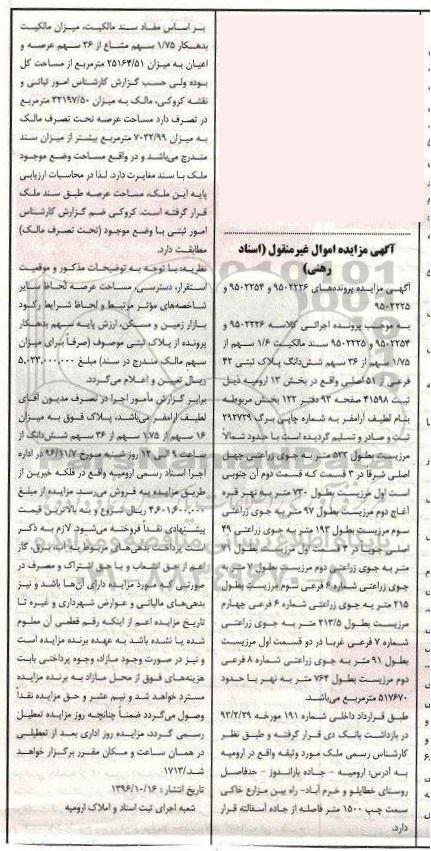 آگهی مزایده اموال غیرمنقول (اسناد
رهنی)
آگهی مزایده پرونده‌های ۹۵۰۲۲۲۶ و ۹۵۰۲۲۵۴ و
۹۵۰۲۲۲۵
به موجب پرونده اجرائی کلاسه ۹۵۰۲۲۲۶ و
۹۵۰۲۲۵۴ و ۹۵۰۲۲۲۵ سند مالکیت ۱/۶ سهم از
۱/۷۵ سهم از ۳۶ سهم شش‌دانگ پلاک ثبتی ۴۲
فرعی از ۵۱ اصلی واقع در بخش ۱۳ ارومیه ذیل
ثبت ۴۱۵۹۸ صفحه ۹۳ دفتر ۱۲۲ بخش مربوطه
بنام لطیف ارامفر به شماره چاپی برگ ۲۹۲۷۳۹
ثبت و صادر و تسلیم گردیده است با حدود شمالاً
مرزیست بطول ۵۳۳ متر به جوی زراعتی چهل
اصلی شرقا در ۳ قسمت که قسمت دوم آن جنوبی
است اول مرزیست بطول ۷۳۰ متر به نهر قره
آغاج دوم مرزیست بطول ۹۷ متر به جوی زراعتی
سوم مرزیست بطول ۱۹۳ متر به جوی زراعتی ۴۹
اصلی جنوبا در ۴ قسمت اول مرزیست بطول ۳۱
متر به جوی زراعتی دوم مرزیست بطول ۷ متر به
جوی زراعتی شماره ۶ فرعی سوم مرزیست بطول
۲۱۵ متر به جوی زراعتی شماره ۶ فرعی چهارم
مرزیست بطول ۲۱۳/۵ متر به جوی زراعتی
شماره ۷ فرعی غربا در دو قسمت اول مرزیست
بطول ۹۱ متر به جوی زراعتی شماره ۸ فرعی
دوم مرزیست بطول ۷۶۴ متر به نهر با حدود
۵۱۷۶۷۰ مترمربع می‌باشد.
طبق قرارداد داخلی شماره ۱۹۱ مورخه ۹۳/۲/۲۹
در بازداشت بانک دی قرار گرفته و طبق نظر
کارشناس رسمی ملک مورد وثیقه واقع در ارومیه
به آدرس: ارومیه - جاده باراندوز - حدفاصل
روستای خطایلو و خرم آباد- راه بین مزارع خاکی
سمت چپ ۱۵۰۰ متر فاصله از جاده آسفالته قرار
دارد.
بر اساس مفاد سند مالکیت، میزان مالکیت
بدهکار ۱/۷۵ سهم مشاع از ۳۶ سهم عرصه و
اعیان به میزان ۲۵۱۶۴/۵۱ مترمربع از مساحت کل
بوده ولی حسب گزارش کارشناس امور ثباتی و
نقشه کروکی، مالک به میزان ۳۲۱۹۷/۵۰ مترمربع
در تصرف دارد مساحت عرصه تحت تصرف مالک
به میزان ۷۰۳۲/۹۹ مترمربع بیشتر از میزان سند
مندرج می‌باشد و در واقع مساحت وضع موجود
ملک با سند مغایرت دارد. لذا در محاسبات ارزیابی
پایه این ملک، مساحت عرصه طبق سند ملک
قرار گرفته است. کروکی ضم گزارش کارشناس
امور ثبتی با وضع موجود (تحت تصرف مالک)
مطابقت دارد.
نظریه: با توجه به توضیحات مذکور و موقعیت
استقرار، دسترسی، مساحت عرصه لحاظ سایر
شاخصه‌های مؤثر مرتبط و لحاظ شرایط رکود
بازار زمین و مسکن، ارزش پایه سهم بدهکار
پرونده از پلاک ثبتی موصوف (صرفاً برای میزان
سهم مالک مندرج در سند) مبلغ ۵.۰۲۳.۰۰۰.۰۰۰
ریال تعیین و اعلام می‌گردد.
برابر گزارش مأمور اجرا در تصرف مدیون آقای
لطیف ارامفر می‌باشد، پلاک فوق به میزان
۱۶ سهم از ۱.۷۵ سهم از ۳۶ سهم شش‌دانگ از
ساعت ۹ الی ۱۲ روز شنبه مورخ ۹۶/۱۱/۷ در اداره
اجرا اسناد رسمی ارومیه واقع در فلکه خیرین از
طریق مزایده به فروش می‌رسد. مزایده از مبلغ
۴.۶۰۱.۶۰۰.۰۰۰ ریال شروع و به بالاترین قیمت
پیشنهادی نقداً فروخته می‌شود. لازم به ذکر
است پرداخت بدهی‌های مربوط به آب، برق، گاز
اعم از حق انشعاب و یا حق اشتراک و مصرف در
صورتی که مورد مزایده دارای آن‌ها باشد و نیز
بدهی‌های مالیاتی و عوارض شهرداری و غیره تا
تاریخ مزایده اعم از اینکه رقم قطعی آن معلوم
شده یا نشده باشد به عهده برنده مزایده است
و نیز در صورت وجود مازاد، وجوه پرداختی بابت
هزینه‌های فوق از محل مازاد به برنده مزایده
مسترد خواهد شد و نیم عشر و حق مزایده نقداً
وصول می‌گردد ضمناً چنانچه روز مزایده تعطیل
رسمی گردد، مزایده روز اداری بعد از تعطیلی
در همان ساعت و مکان مقرر برگزار خواهد
شد./۱۷۱۳
تاریخ انتشار: ۱۳۹۶/۱۰/۱۶
شعبه اجرای ثبت اسناد و املاک ارومیه